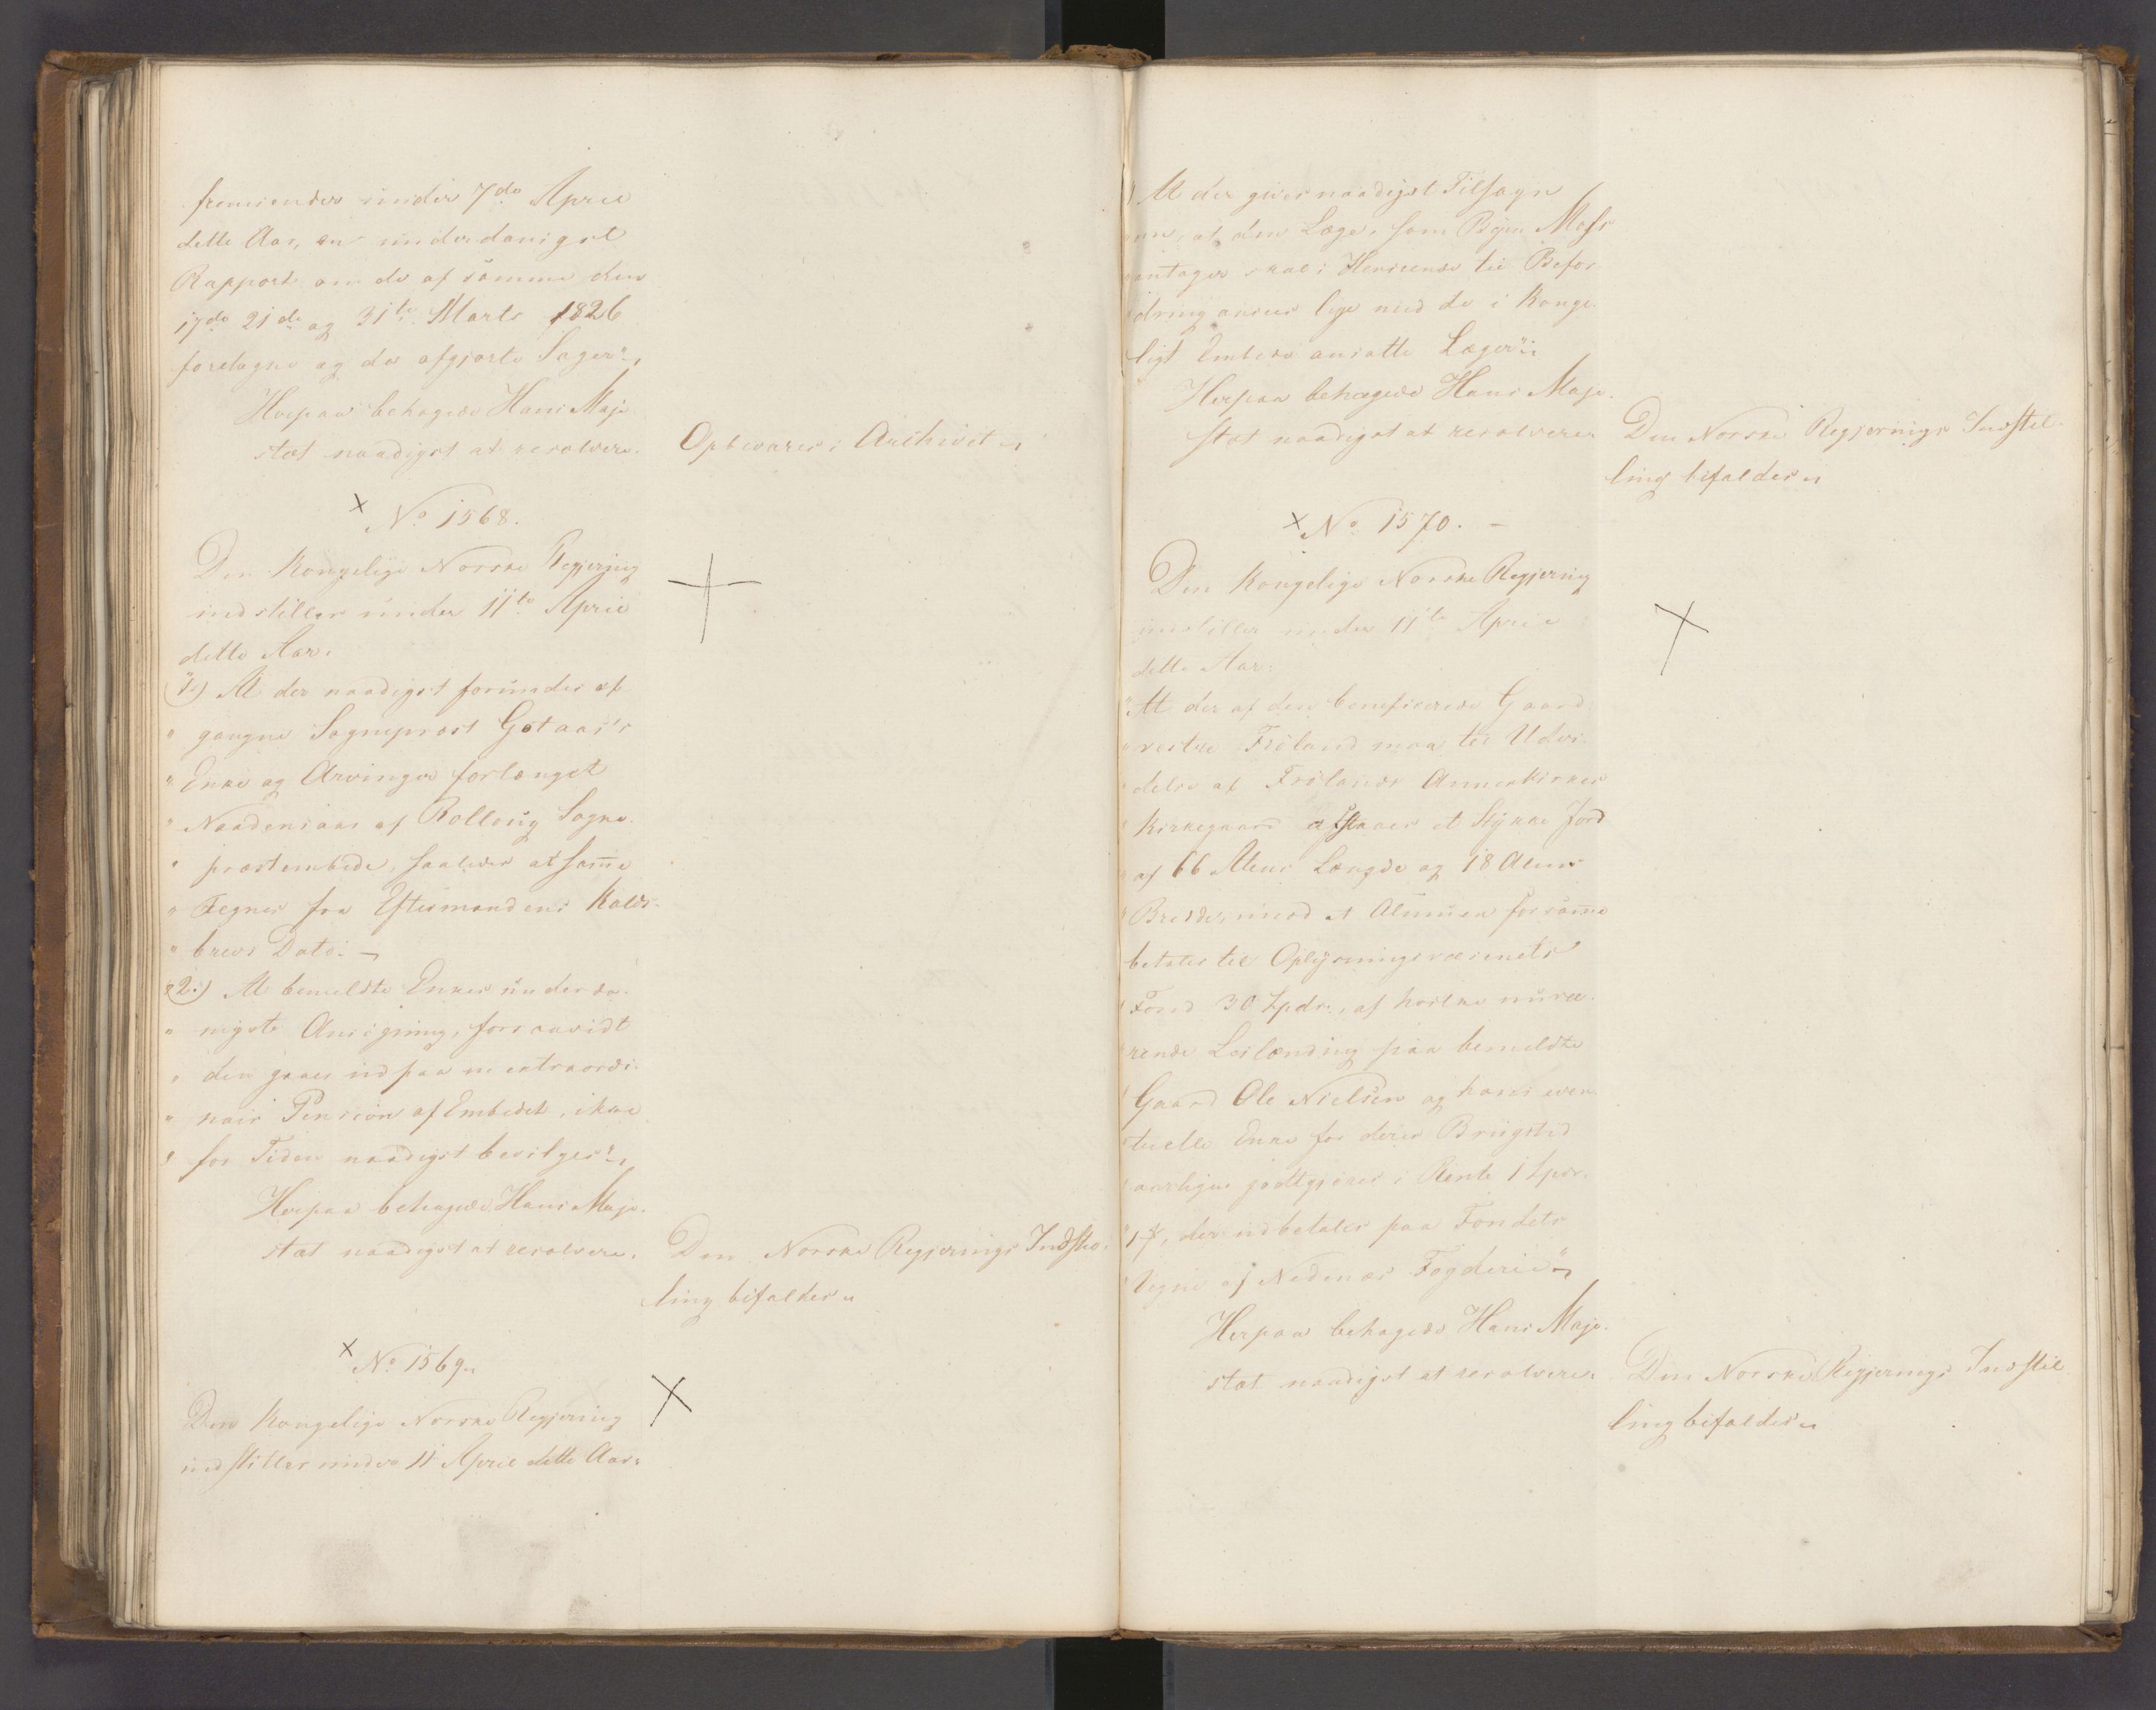 fremsender under 7de April
dette Aar, en underdanigst
Rapport om de af samme den
17de 21de og 31te Marts 1826
foretagne og da afgjorte Sager"
Herpaa behagede Hans Maje-
stæt naadigst at resolvere.
Opbevares i Archivet
× No 1568.
Den Kongelige Norske Regjering
indstiller under 11te April
dette Aar:
"1.) At der naadigst forundes af-
" gangne Sognepræst Gotaas's
" Enke og Arvinger forlænget
" Naadensaar af Rollaug Sogne-
" præstembede, saaledes at same
" regnes fra Eftermandens Kalds-
" brevs Dato.
"2.) At bemeldte Enkes underda-
" nigste Ansøgning, forsaavidt
" den gaaer ud paa en extraordi-
" nair Pension af Embedet, ikke
" for Tiden naadigst bevilges"
Herpaa behagede Hans Maje-
stæt naadigst at resolvere.
Den Norske Regjerings Indstil-
ling bifaldes
× No 1569
Den Kongelige Norske Regjering
indstiller under 11 April dette Aar:
" At der gives naadigst Tilsagn
om, at den Læge, som Byen Moss
antager skal i Henseende til Befor-
dring ansees lige med de i Konge-
ligt Embede ansatte Læger"
Herpaa behagede Hans Maje-
stæt naadigst at resolvere
Den Norske Regjerings Indstil-
ling bifaldes
× No 1570.
Den Kongelige Norske Regjering
indstiller under 11te April
dette Aar:
" At der af den beneficerede Gaard
" vestre Fröland maa til Udvi-
" delse af Frölands Annexkirkes
" Kirkegaard afstaaes et Stykke Jord
" af 66 Alens Længde og 18 Alens
" Bredde, imod at Almuen for same
betaler til Oplysningsvæsenets
" Fond 30 Spdr., af hvilke nuvæ-
" rende Leilænding paa bemeldte
" Gaard Ole Nielsen og hans even-
" tuelle Enke for deres Brugstid
" aarligen godtgjøres i Rente 1 Spdr.
der udbetales paa Fondets
" Vegne af Nedenæs Fogderie"
Herpaa behagede Hans Maje-
stæt naadigst at resolvere.
Den Norske Regjerings Indstil
ling bifaldes